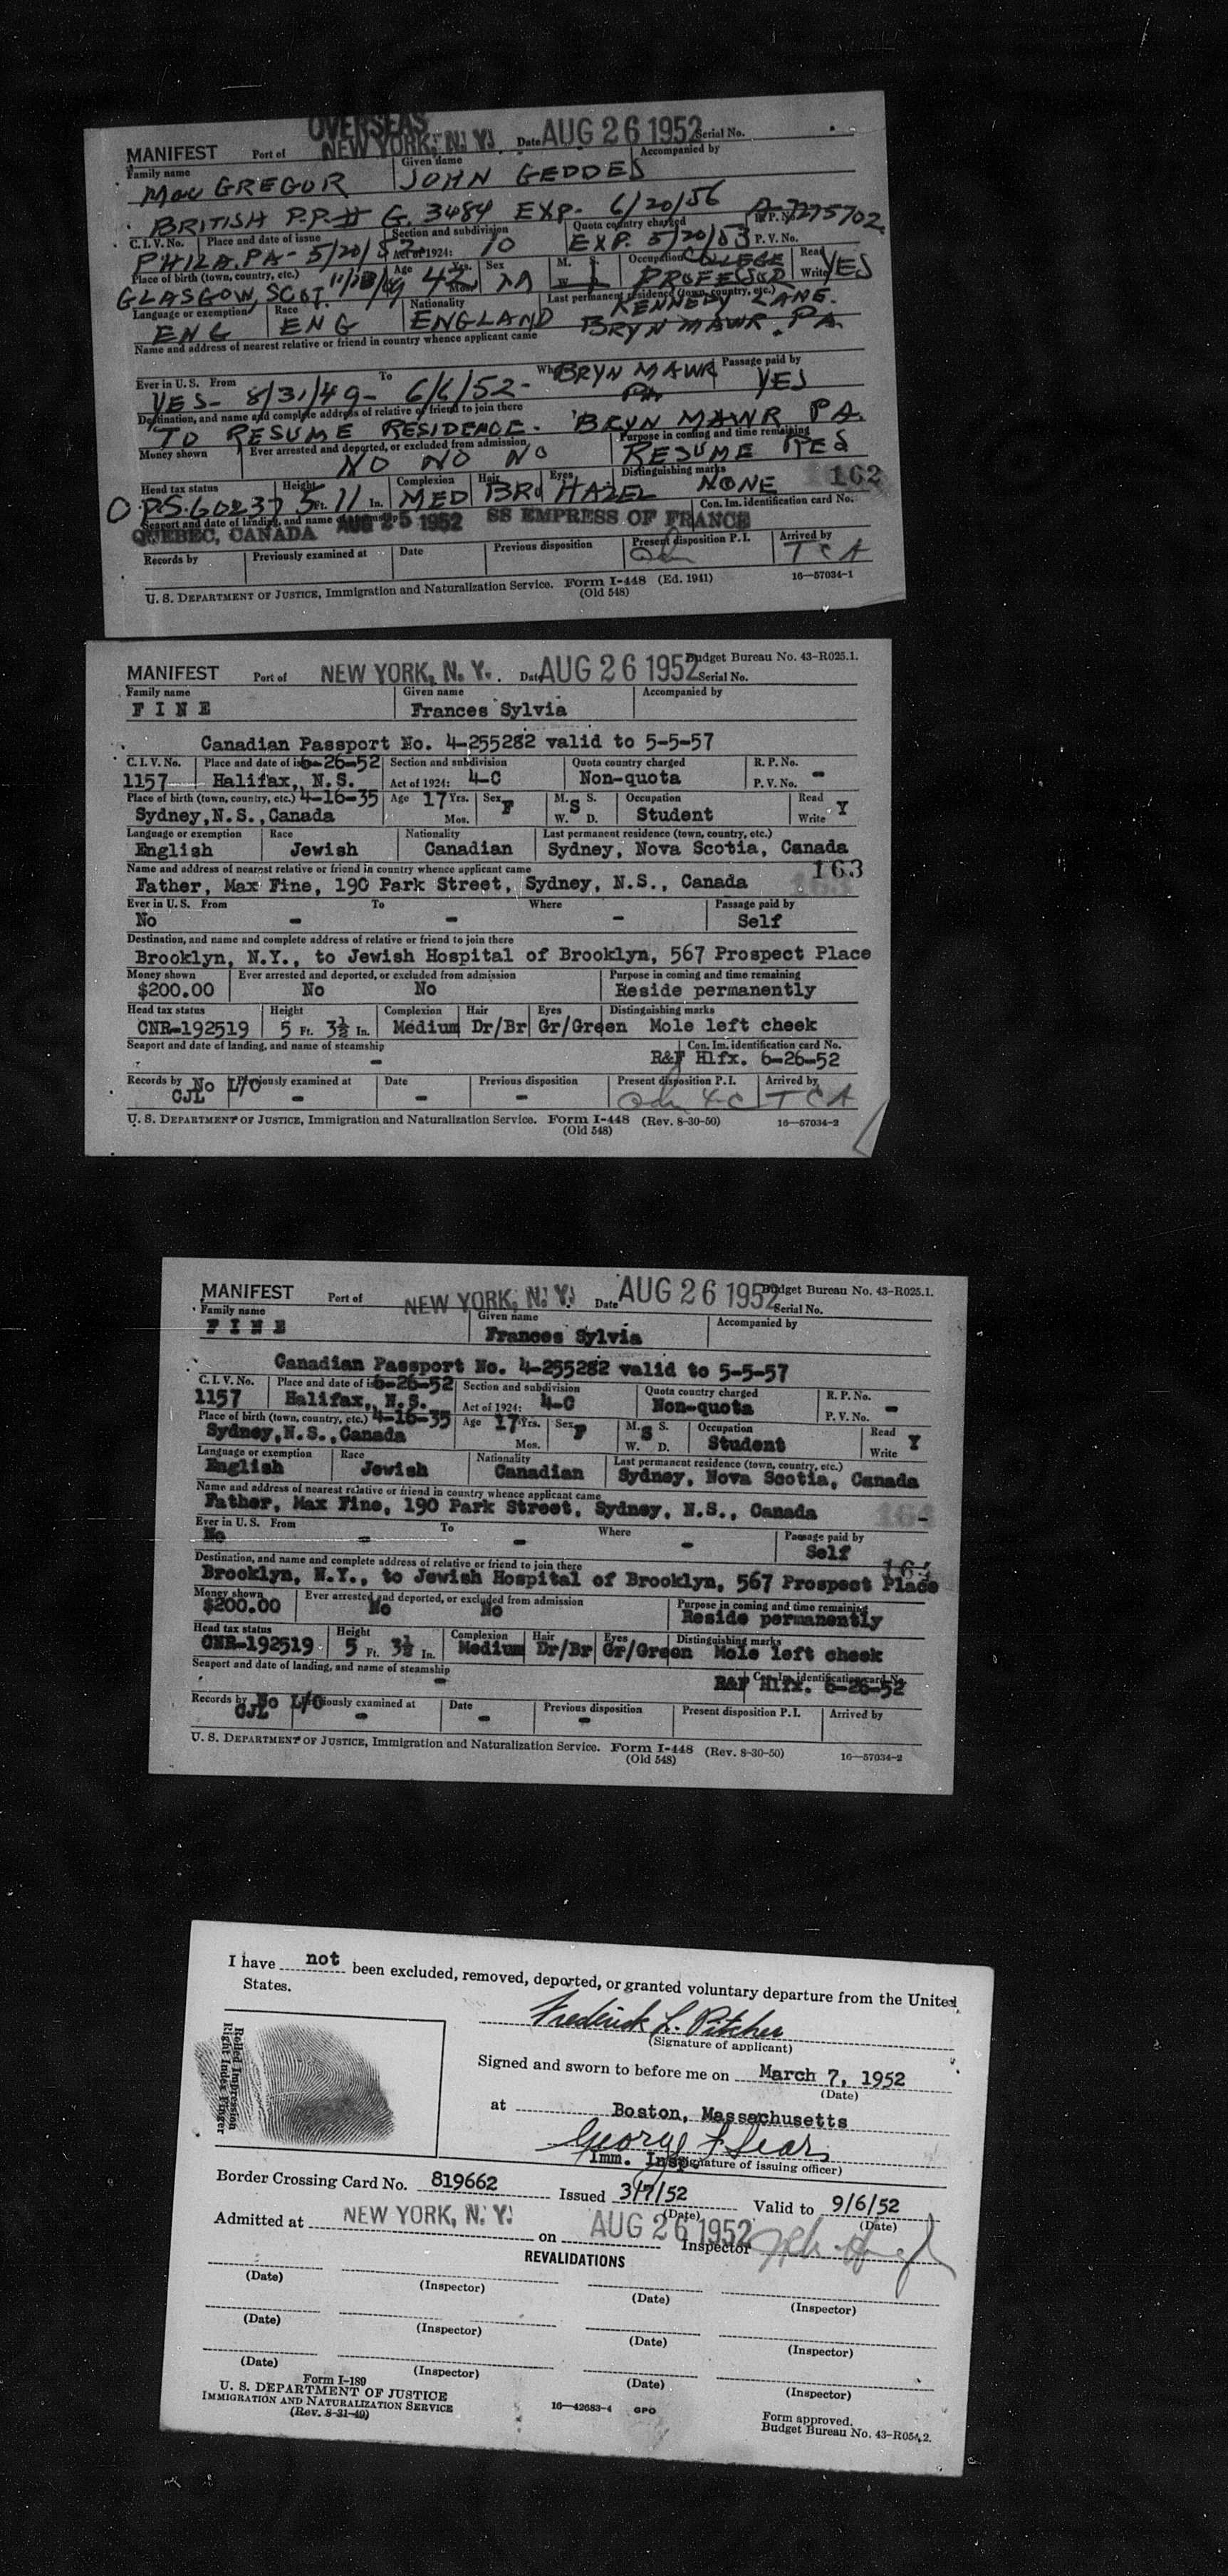 OVERSEAS
MANIFEST Port of NEW YORK, N. Y. Date AUG 26 1952 Serial No.
Family name Given name Accompanied by
Mac GREGOR JOHN GEDDES
BRITISH P.P.# G. 3484 EXP. 6/20/56 A-7275702
C. I. V. No. Place and date of issue Section and subdivision Quota country charged R. P. No.
PHILA, PA - 5/20/52 Act of 1924: 10 EXP. 5/20/53 P. V. No.
Place of birth (town, country, etc.) Age Yrs. Mos. Sex M. S. W. Occupation Read Write
GLASGOW, SCOT. 42 M COLLEGE PROFESSOR YES
Language or exemption Race Nationality Last permanent residence (town, country, etc.)
ENG ENG ENGLAND KENNEDY LANE.
BRYN MAWR. PA.
Name and address of nearest relative or friend in country whence applicant came
Ever in U. S. From To Where Passage paid by
YES - 8/31/49 - 6/6/52 - BRYN MAWR PA YES
Destination, and name and complete address of relative or friend to join there
TO RESUME RESIDENCE. BRYN MAWR PA.
Money shown Ever arrested and deported, or excluded from admission Purpose in coming and time remaining
NO NO NO RESUME RES
162
Head tax status Height Complexion Hair Eyes Distinguishing marks
O P.S. 60237 5 Ft. 11 In. MED BRN HAZEL NONE
Seaport and date of landing, and name of steamship Con. Im. identification card No.
QUEBEC, CANADA AUG 25 1952 SS EMPRESS OF FRANCE
Records by Previously examined at Date Previous disposition Present disposition P. I. Arrived by
TCA
U. S. DEPARTMENT OF JUSTICE, Immigration and Naturalization Service. Form I-448 (Ed. 1941) 16—57034-1
(Old 548)
Budget Bureau No. 43-R025.1.
MANIFEST Port of NEW YORK, N. Y. Date AUG 26 1952 Serial No.
Family name Given name Accompanied by
FINE Frances Sylvia
Canadian Passport No. 4-255282 valid to 5-5-57
C. I. V. No. Place and date of is 6-26-52 Section and subdivision Quota country charged R. P. No.
1157 Halifax, N.S. Act of 1924: 4-C Non-quota P. V. No. -
Place of birth (town, country, etc.) 4-16-35 Age 17 Yrs. Mos. Sex F M. S. W. D. S Occupation Read Write Y
Sydney,N.S.,Canada Student
Language or exemption Race Nationality Last permanent residence (town, country, etc.)
English Jewish Canadian Sydney, Nova Scotia, Canada
Name and address of nearest relative or friend in country whence applicant came 163
Father, Max Fine, 190 Park Street, Sydney, N.S., Canada
Ever in U. S. From To Where Passage paid by
No - - - Self
Destination, and name and complete address of relative or friend to join there
Brooklyn, N.Y., to Jewish Hospital of Brooklyn, 567 Prospect Place
Money shown Ever arrested and deported, or excluded from admission Purpose in coming and time remaining
$200.00 No No Reside permanently
Head tax status Height Complexion Hair Eyes Distinguishing marks
CNR-192519 5 Ft. 3½ In. Medium Dr/Br Gr/Green Mole left cheek
Seaport and date of landing, and name of steamship Con. Im. identification card No.
- R&F Hlfx. 6-26-52
Records by No L/O Previously examined at Date Previous disposition Present disposition P. I. Arrived by
CJL - - - 4-C TCA
U. S. DEPARTMENT OF JUSTICE, Immigration and Naturalization Service. Form I-448 (Rev. 8-30-50) 16—57034-2
(Old 548)
Budget Bureau No. 43-R025.1.
MANIFEST Port of NEW YORK, N. Y. Date AUG 26 1952 Serial No.
Family name Given name Accompanied by
FINE Frances Sylvia
Canadian Passport No. 4-255282 valid to 5-5-57
C. I. V. No. Place and date of is 6-26-52 Section and subdivision Quota country charged R. P. No.
1157 Halifax, N.S. Act of 1924: 4-C Non-quota P. V. No. -
Place of birth (town, country, etc.) 4-16-35 Age 17 Yrs. Mos. Sex F M. S. W. D. S Occupation Read Write Y
Sydney,N.S.,Canada Student
Language or exemption Race Nationality Last permanent residence (town, country, etc.)
English Jewish Canadian Sydney, Nova Scotia, Canada
Name and address of nearest relative or friend in country whence applicant came
Father, Max Fine, 190 Park Street, Sydney, N.S., Canada
Ever in U. S. From To Where Passage paid by
No - - - Self
Destination, and name and complete address of relative or friend to join there
Brooklyn, N.Y., to Jewish Hospital of Brooklyn, 567 Prospect Place
Money shown Ever arrested and deported, or excluded from admission Purpose in coming and time remaining
$200.00 No No Reside permanently
Head tax status Height Complexion Hair Eyes Distinguishing marks
CNR-192519 5 Ft. 3½ In. Medium Dr/Br Gr/Green Mole left cheek
Seaport and date of landing, and name of steamship Con. Im. identification card No.
- R&F Hlfx. 6-26-52
Records by No L/O Previously examined at Date Previous disposition Present disposition P. I. Arrived by
CJL - - -
U. S. DEPARTMENT OF JUSTICE, Immigration and Naturalization Service. Form I-448 (Rev. 8-30-50) 16—57034-2
(Old 548)
I have not been excluded, removed, deported, or granted voluntary departure from the United
States.
Frederick L. Pitcher
(Signature of applicant)
Rolled Impression
Right Index Finger
Signed and sworn to before me on March 7, 1952
(Date)
at Boston, Massachusetts
George F Sears
Imm. Insp. (Signature of issuing officer)
Border Crossing Card No. 819662 Issued 3/7/52 Valid to 9/6/52
(Date) (Date)
Admitted at NEW YORK, N. Y. on AUG 26 1952 Inspector
REVALIDATIONS
(Date) (Inspector) (Date) (Inspector)
(Date) (Inspector) (Date) (Inspector)
(Date) (Inspector) (Date) (Inspector)
Form I-189
U. S. DEPARTMENT OF JUSTICE
IMMIGRATION AND NATURALIZATION SERVICE
(Rev. 8-31-49)
16—42683-4 GPO
Form approved.
Budget Bureau No. 43-R054.2.